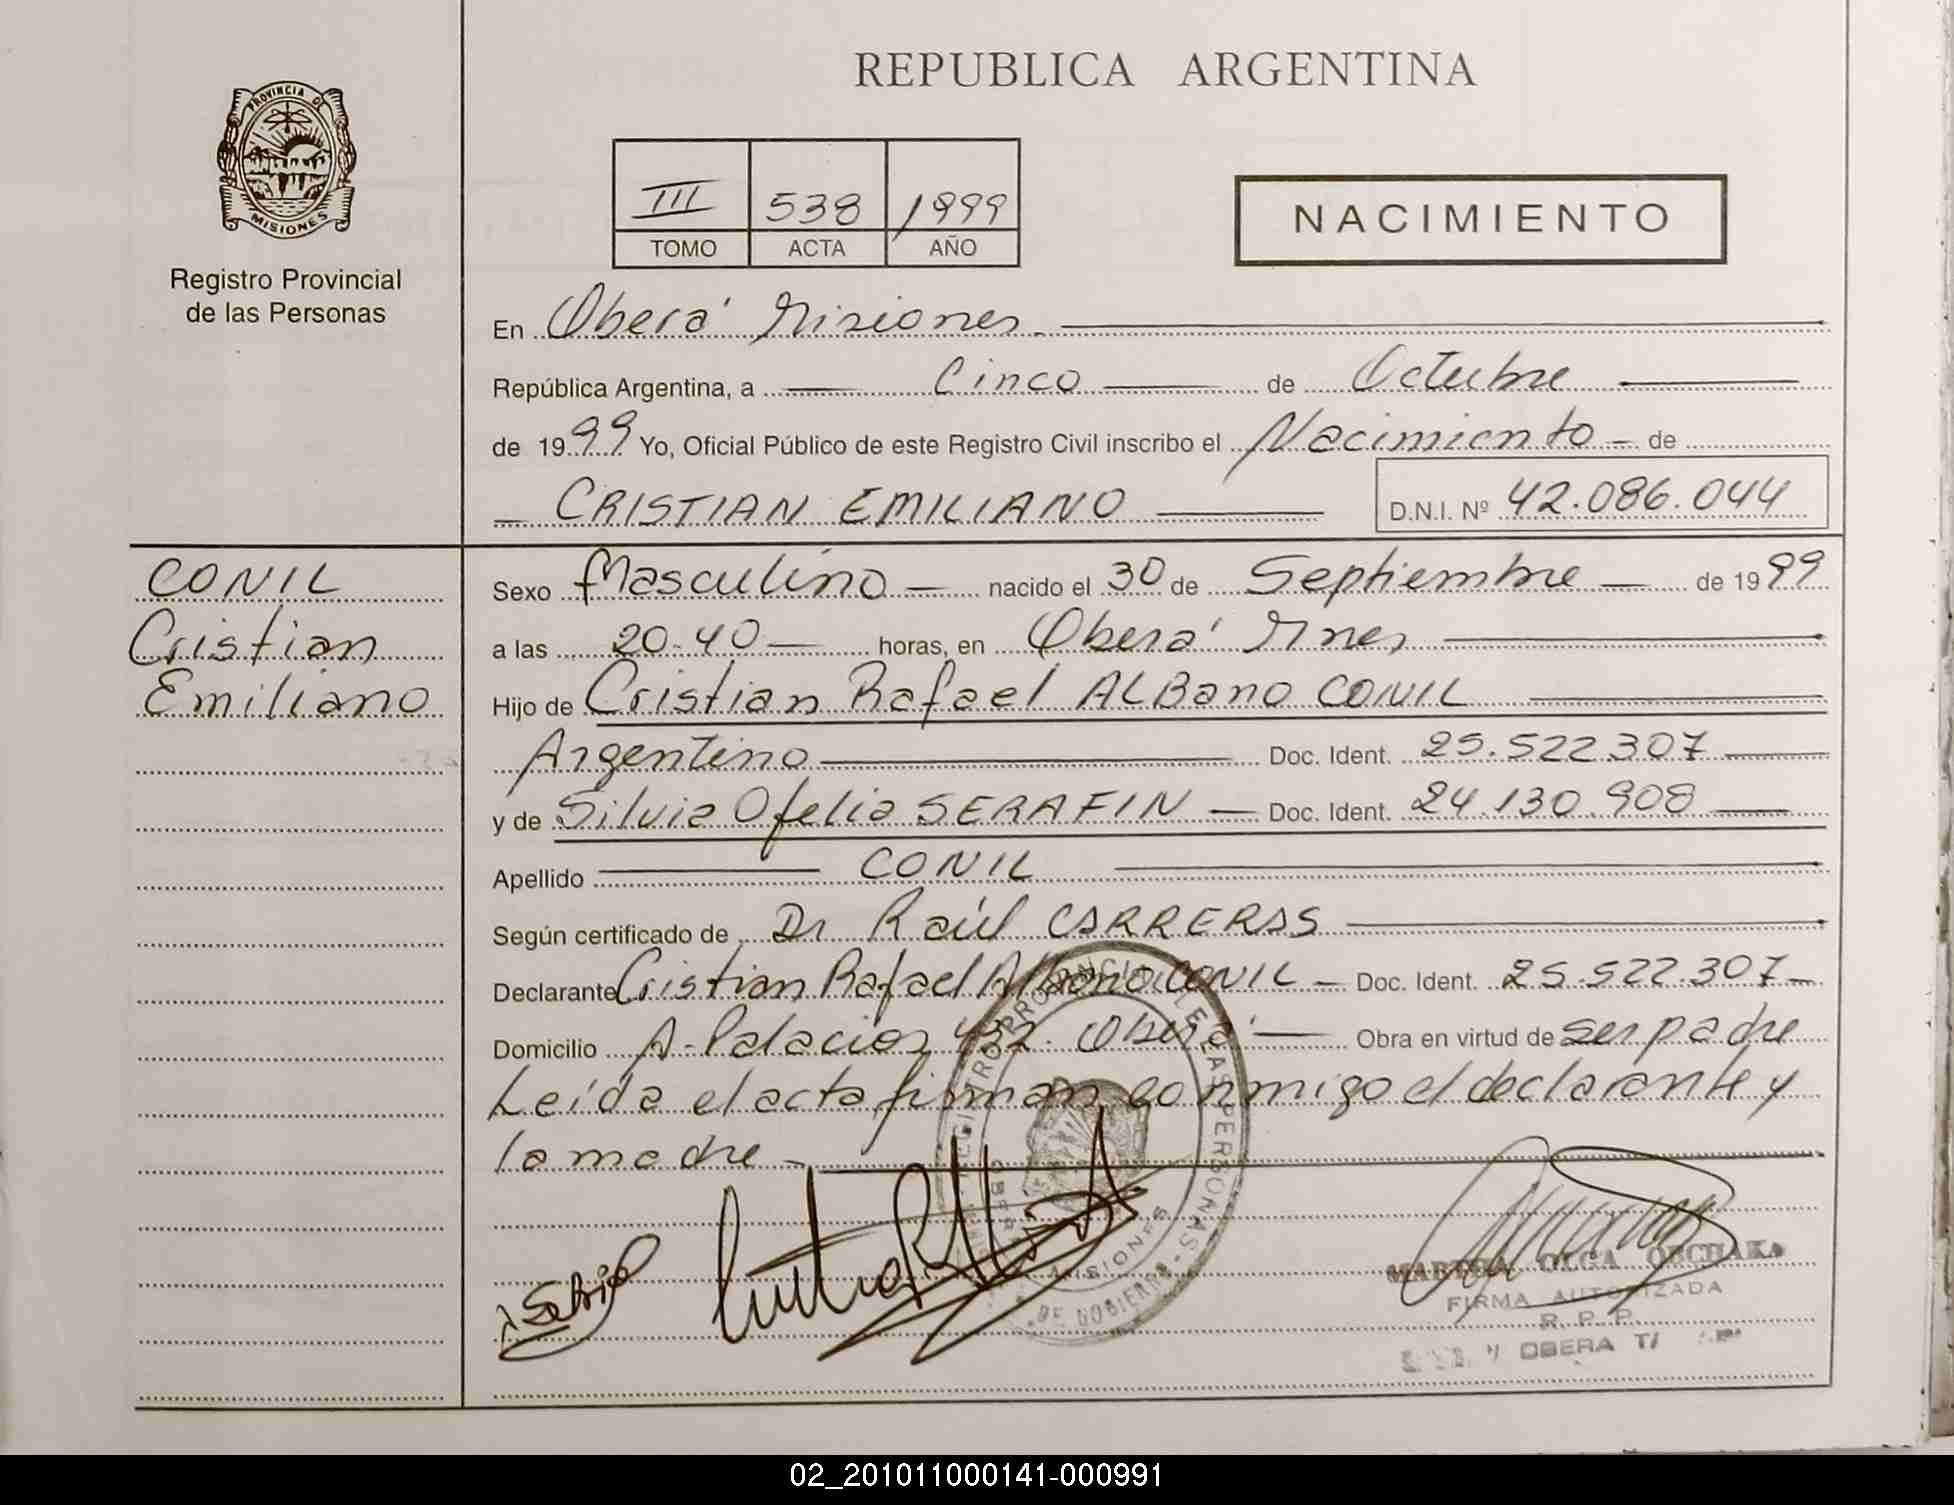 REPUBLICA ARGENTINA
PROVINCIA DE
MISIONES
Registro Provincial
de las Personas
III 538 1999
TOMO ACTA AÑO
NACIMIENTO
En Oberá Misiones
República Argentina, a Cinco de Octubre
de 1999 Yo, Oficial Público de este Registro Civil inscribo el Nacimiento de
CRISTIAN EMILIANO D.N.I. Nº 42.086.044
CONIL
Cristian
Emiliano
Sexo Masculino nacido el 30 de Septiembre de 1999
a las 20.40 horas, en Oberá Mnes
Hijo de Cristian Rafael ALBano CONIL
Argentino Doc. Ident. 25.522.307
y de Silvia Ofelia SERAFIN Doc. Ident. 24.130.908
Apellido CONIL
Según certificado de Dr Raúl CARRERAS
Declarante Cristian Rafael Albano CONIL Doc. Ident. 25.522.307
Domicilio A. Palacios 432. Oberá Obra en virtud de ser padre
Leída el acta firman conmigo el declarante y
la madre
REGISTRO PROVINCIAL DE LAS PERSONAS
MISIONES
DE GOBIERNO
MARTHA OLGA OBCHAKA
FIRMA AUTORIZADA
R. P. P.
OBERA
02_201011000141-000991